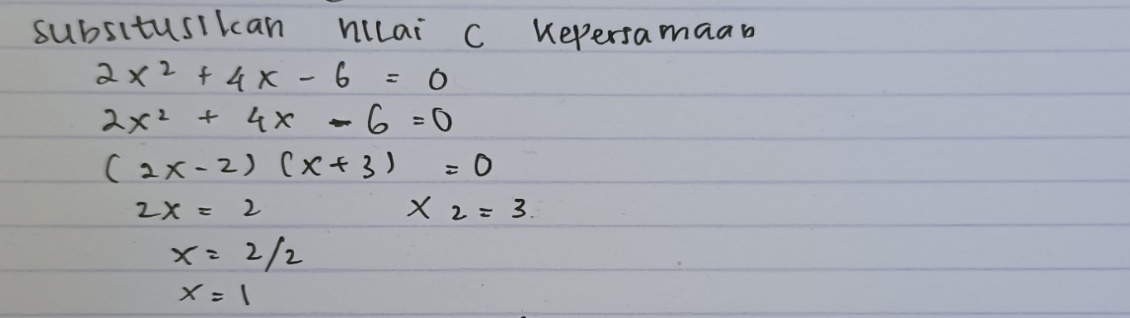 substitusikan nilai c kepersamaan
2x² + 4x - 6 = 0
2x² + 4x - 6 = 0
(2x - 2) (x + 3) = 0
2x = 2 x 2 = 3.
x = 2/2
x = 1